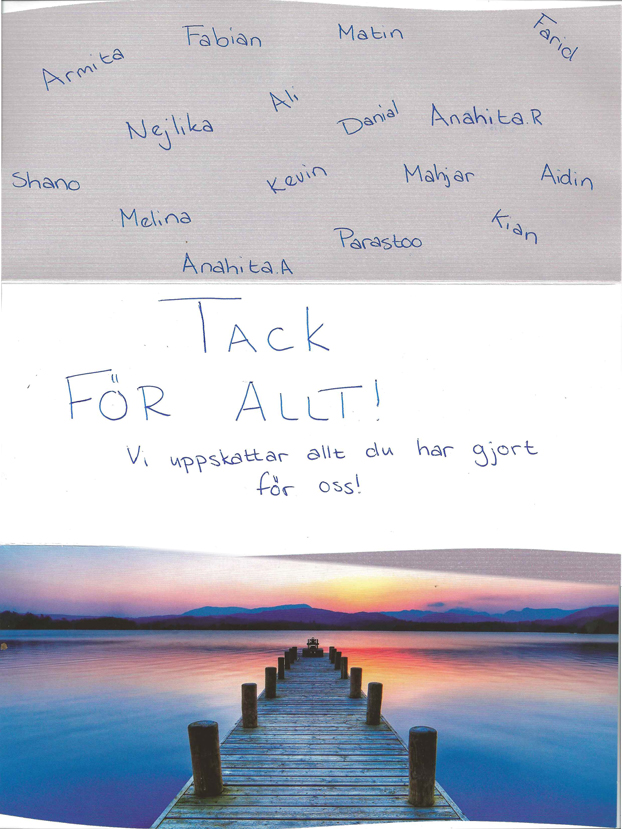 Fabian
Matin
Farid
Armita
Ali
Nejlika
Danial
Anahita.R
Shano
Kevin
Mahjar
Aidin
Melina
Parastoo
Kian
Anahita.A
TACK
FÖR ALLT!
Vi uppskattar allt du har gjort
för oss!